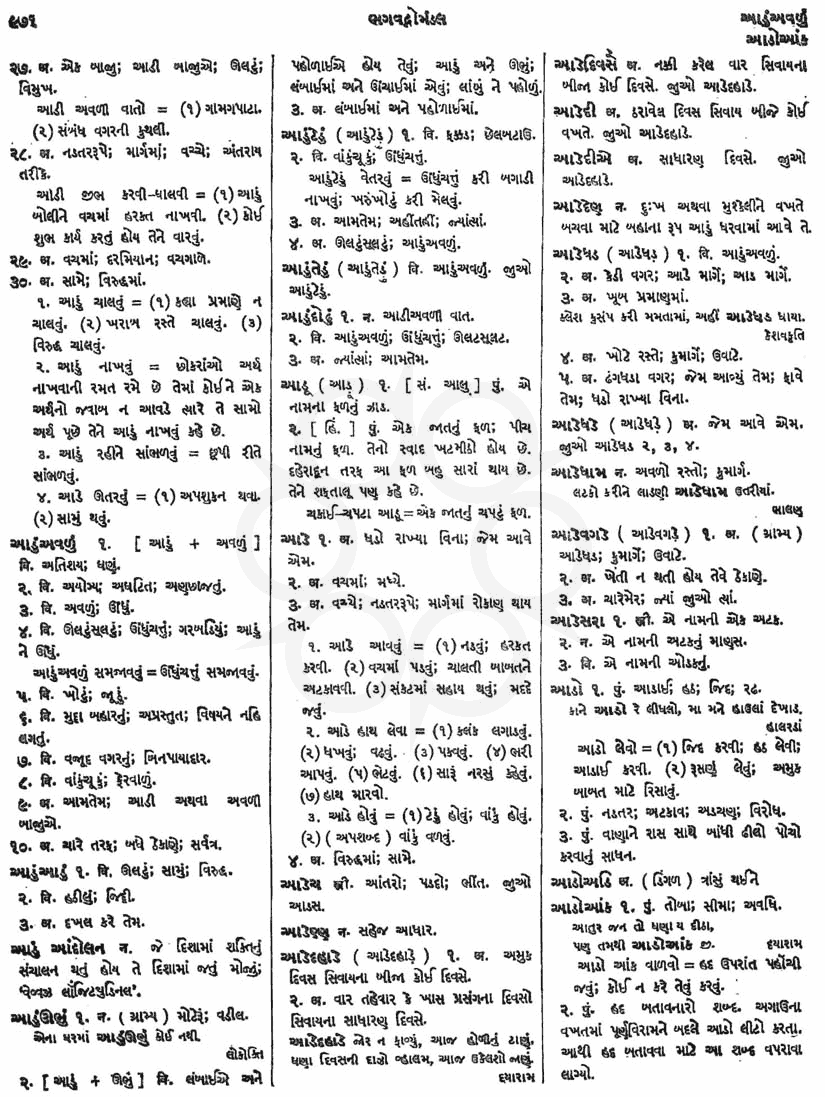 ૯૭૧
ભગવદ્ગોમંડલ
આડુંઅવળું
આડોઆંક
૨૭. અ. એક બાજુ; આડી બાજુએ; ઊલટું;
વિમુખ.
આડી અવળી વાતો = (૧) ગામગપાટા.
(૨) સંબંધ વગરની કુથલી.
૨૮. અ. નડતરરૂપે; માર્ગમાં; વચ્ચે; અંતરાય
તરીકે.
આડી જીભ કરવી-ઘાલવી = (૧) આડું
બોલીને વચમાં હરકત નાખવી. (૨) કોઈ
શુભ કાર્ય કરતું હોય તેને વારવું.
૨૯. અ. વચમાં; દરમિયાન; વચગાળે.
૩૦. અ. સામે; વિરુદ્ધમાં.
૧. આડું ચાલવું = (૧) કહ્યા પ્રમાણે ન
ચાલવું. (૨) ખરાબ રસ્તે ચાલવું. (૩)
વિરુદ્ધ ચાલવું.
૨. આડું નાખવું = છોકરાંઓ અર્થ
નાખવાની રમત રમે છે તેમાં કોઈને એક
અર્થનો જવાબ ન આવડે ત્યારે તે સામો
અર્થ પૂછે તેને આડું નાખવું કહે છે.
૩. આડું રહીને સાંભળવું = છૂપી રીતે
સાંભળવું.
૪. આડે ઊતરવું = (૧) અપશુકન થવા.
(૨) સામું થવું.
આડુંઅવળું ૧. [ આડું + અવળું ]
વિ. અતિશય; ઘણું.
૨. વિ. અયોગ્ય; અઘટિત; અણછાજતું.
૩. વિ. અવળું; ઊંધું.
૪. વિ. ઊલટુંસુલટું; ઊંધુંચત્તું; ગરબડિયું; આડું
ને ઊંધું.
આડુંઅવળું સમજાવવું = ઊંધુંચત્તું સમજાવવું.
૫. વિ. ખોટું; જૂઠું.
૬. વિ. મુદ્દા બહારનું; અપ્રસ્તુત; વિષયને નહિ
લગતું.
૭. વિ. વજૂદ વગરનું; બિનપાયાદાર.
૮. વિ. વાંકુંચૂકું; ફેરવાળું.
૯. અ. આમતેમ; આડી અથવા અવળી
બાજુએ.
૧૦. અ. ચારે તરફ; બધે ઠેકાણે; સર્વત્ર.
આડુંઆડું ૧. વિ. ઊલટું; સામું; વિરુદ્ધ.
૨. વિ. હઠીલું; જિદ્દી.
૩. અ. દખલ કરે તેમ.
આડું આંદોલન ન. જે દિશામાં શક્તિનું
સંચાલન થતું હોય તે દિશામાં જતું મોજું;
‘વેવ્વઝ લૉંજિટ્યુડિનલ’.
આડુંઊભું ૧. ન. (ગ્રામ્ય) મોટેરું; વડીલ.
એના ઘરમાં આડુંઊભું કોઈ નથી.
લોકોક્તિ
૨. [ આડું + ઊભું ] વિ. લંબાઈએ અને
પહોળાઈએ હોય તેવું; આડું અને ઊભું;
લંબાઈમાં અને ઊંચાઈમાં એવું; લાંબું ને પહોળું.
૩. અ. લંબાઈમાં અને પહોળાઈમાં.
આડુંટેડું ( આડુંટેઢું ) ૧. વિ. ફક્કડ; છેલબટાઉ.
૨. વિ. વાંકુંચૂકું; ઊંધુંચત્તું.
આડુંટેડું વેતરવું = ઊંધુંચત્તું કરી બગાડી
નાખવું; ખરુંખોટું કરી મેલવું.
૩. અ. આમતેમ; અહીંતહીં; જ્યાંત્યાં.
૪. અ. ઊલટુંસુલટું; આડુંઅવળું.
આડુંતેડું (આડુંતેઢું) વિ. આડુંઅવળું. જુઓ
આડુંટેડું.
આડુંદોઢું ૧. ન. આડીઅવળી વાત.
૨. વિ. આડુંઅવળું; ઊંધુંચત્તું; ઊલટસૂલટ.
૩. અ. જ્યાંત્યાં; આમતેમ.
આડૂ ( આડુ ) ૧. [ સં. આલુ ] પું. એ
નામના ફળનું ઝાડ.
૨. [ હિં. ] પું. એક જાતનું ફળ; પીચ
નામનું ફળ. તેનો સ્વાદ ખટમીઠો હોય છે.
દહેરાદૂન તરફ આ ફળ બહુ સારાં થાય છે.
તેને શફતાલૂ પણ કહે છે.
ચકાઈ-ચપટા આડૂ = એક જાતનું ચપટું ફળ.
આડે ૧. અ. ધડો રાખ્યા વિના; જેમ આવે
એમ.
૨. અ. વચમાં; મધ્યે.
૩. અ. વચ્ચે; નડતરરૂપે; માર્ગમાં રોકાણ થાય
તેમ.
૧. આડે આવવું = (૧) નડવું; હરકત
કરવી. (૨) વચમાં પડવું; ચાલતી બાબતને
અટકાવવી. (૩) સંકટમાં સહાય થવું; મદદે
જવું.
૨. આડે હાથ લેવા = (૧) કલંક લગાડવું.
(૨) ધખવું; વઢવું. (૩) પકવવું. (૪) ભરી
આપવું. (૫) ભેટવું. (૬) સારું નરસું કહેવું.
(૭) હાથ મારવો.
૩. આડે હોવું = (૧) ટેડું હોવું; વાંકું હોવું.
(૨) ( અપશબ્દ ) વાંકું વળવું.
૪. અ. વિરુદ્ધમાં; સામે.
આડેચ સ્ત્રી. આંતરો; પડદો; ભીંત. જુઓ
આડસ.
આડેણુ ન. સહેજ આધાર.
આડેદહાડે ( આડેદહાડે ) ૧. અ. અમુક
દિવસ સિવાયના બીજા કોઈ દિવસે.
૨. અ. વાર તહેવાર કે ખાસ પ્રસંગના દિવસો
સિવાયના સાધારણ દિવસે.
આડેદહાડે જોર ન ફાવ્યું, આજ હોળીનું ટાણું,
ઘણા દિવસની દાઝો વ્હાલમ, આજ ઉકેલશો જાણું.
દયારામ
આડેદિવસે અ. નક્કી કરેલ વાર સિવાયના
બીજા કોઈ દિવસે. જુઓ આડેદહાડે.
આડેદી અ. ઠરાવેલ દિવસ સિવાય બીજે કોઈ
વખતે. જુઓ આડેદહાડે.
આડેદીએ અ. સાધારણ દિવસે. જુઓ
આડેદહાડે.
આડેદેણુ ન. દુઃખ અથવા મુશ્કેલીને વખતે
બચવા માટે બહાના રૂપ આડું ધરવામાં આવે તે.
આડેધડ (આડેધડ) ૧. વિ. આડુંઅવળું.
૨. અ. કેડી વગર; આડે માર્ગે; આડ માર્ગે.
૩. અ. ખૂબ પ્રમાણમાં.
કલેશ કુસંપ કરી મમતામાં, અહીં આડેધડ ધાયા.
કેશવકૃતિ
૪. અ. ખોટે રસ્તે; કુમાર્ગે; ઉવાટે.
૫. અ. ઢંગધડા વગર; જેમ આવ્યું તેમ; ફાવે
તેમ; ધડો રાખ્યા વિના.
આડેધડે ( આડેધડે ) અ. જેમ આવે એમ.
જુઓ આડેધડ ૨, ૩, ૪.
આડેધામ ન. અવળો રસ્તો; કુમાર્ગ.
લટકો કરીને લાડણી આડેધામ ઉતરીયાં.
ભાલણ
આડેવગડે ( આડેવગડે ) ૧. અ. ( ગ્રામ્ય )
આડેધડ; કુમાર્ગે; ઉવાટે.
૨. અ. ખેતી ન થતી હોય તેવે ઠેકાણે.
૩. અ. ચારેમેર; જ્યાં જુઓ ત્યાં.
આડેસરા ૧. સ્ત્રી. એ નામની એક અટક.
૨. ન. એ નામની અટકનું માણસ.
૩. વિ. એ નામની ઓડકનું.
આડો ૧. પું. આડાઈ; હઠ; જિદ; રઢ.
કાને આડો રે લીધલો, મા મને હાઉલાં દેખાડ.
હાલરડાં
આડો લેવો = (૧) જિદ કરવી; હઠ લેવી;
આડાઈ કરવી. (૨) રૂસણું લેવું; અમુક
બાબત માટે રિસાવું.
૨. પું. નડતર; અટકાવ; અડચણ; વિરોધ.
૩. પું. વાણાને રાસ સાથે બાંધી ઢીલો પોચો
કરવાનું સાધન.
આડોઅડિ અ. (ડિંગળ) ત્રાંસું થઈને
આડોઆંક ૧. પું. તોબા; સીમા; અવધિ.
આતુર જન તો ઘણા ય દીઠા,
પણ તમથી આડોઆંક જી. દયારામ
આડો આંક વાળવો = હદ ઉપરાંત પહોંચી
જવું; કોઈ ન કરે તેવું કરવું.
૨. પું. હદ બતાવનારો શબ્દ. અગાઉના
વખતમાં પૂર્ણવિરામને બદલે આડો લીટો કરતા.
આથી હદ બતાવવા માટે આ શબ્દ વપરાવા
લાગ્યો.